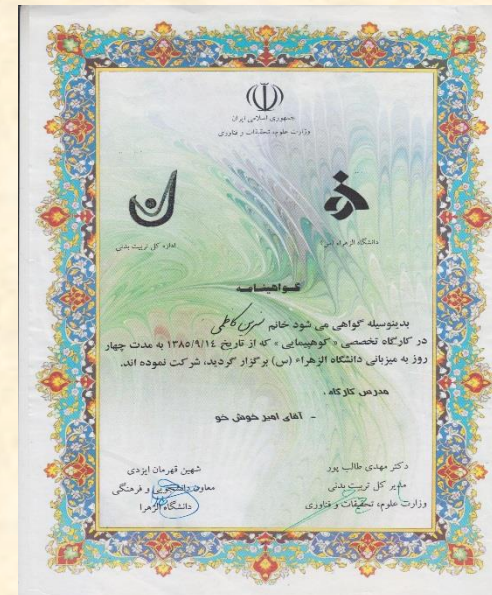 جمهوری اسلامی ایران
وزارت علوم، تحقیقات و فناوری
دانشگاه الزهراء (س)
اداره کل تربیت بدنی
گواهینامه
بدینوسیله گواهی می شود خانم نسرین کاظمی
در کارگاه تخصصی « کوهپیمایی » که از تاریخ ۱۳۸۵/۹/۱۴ به مدت چهار
روز به میزبانی دانشگاه الزهراء (س) برگزار گردید، شرکت نموده اند.
مدرس کارگاه .
- آقای امیر خوش خو
دکتر مهدی طالب پور
مدیر کل تربیت بدنی
وزارت علوم، تحقیقات و فناوری
شهین قهرمان ایزدی
معاون دانشجویی و فرهنگی
دانشگاه الزهرا